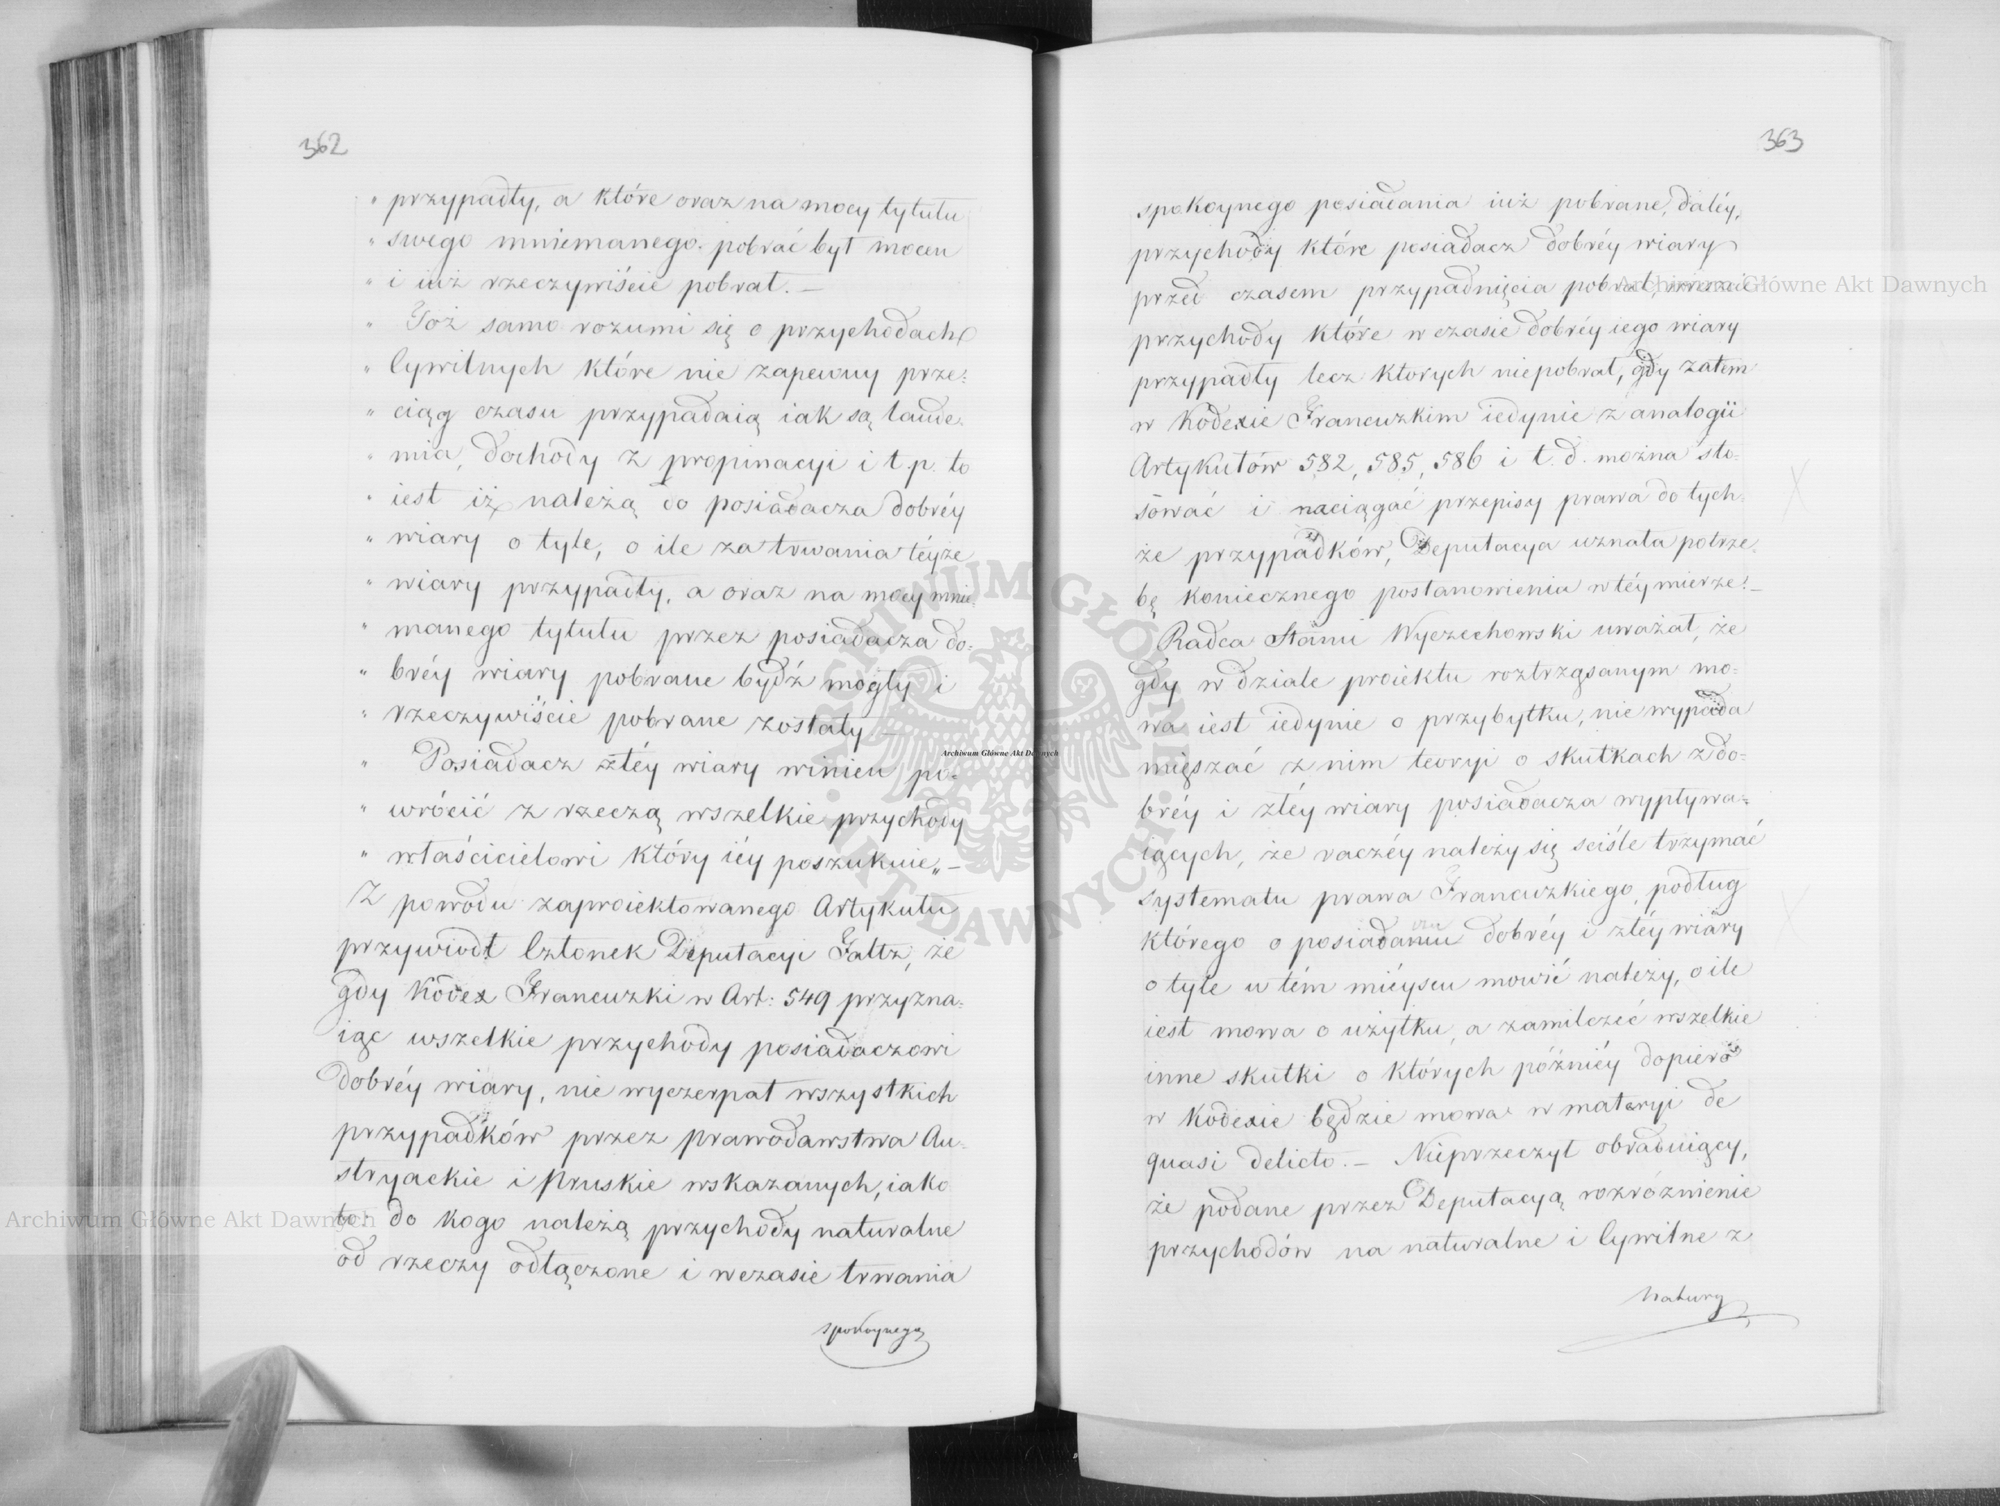 362
„ przypadły, a które oraz na mocy tytułu
„ swego mniemanego pobrać był mocen
„ i iuż rzeczywiście pobrał. —
„ Toż samo rozumi się o przychodach
„ Cywilnych które nie zapewny prze:
„ ciąg czasu przypadaią iak są laude:
„ mia, dochody z propinacyi i t. p. to
„ iest iż należą do posiadacza dobréy
„ wiary o tyle, o ile za trwania téyże
„ wiary przypadły, a oraz na mocy mnie:
„ manego tytułu przez posiadacza do:
„ bréy wiary pobrane bydź mogły i
„ rzeczywiście pobrane zostały —
„ Posiadacz złéy wiary winien po:
„ wrócić z rzeczą wszelkie przychody
„ właścicielowi który iéy poszukuie„ —
Z powodu zaproiektowanego Artykułu
przywiodł Członek Deputacyi Faltz, że
gdy Kodex Francuzki w Art: 549 przyzna:
iąc wszelkie przychody posiadaczowi
dobréy wiary, nie wyczerpał wszystkich
przypadków przez prawodawstwa Au:
stryackie i Pruskie wskazanych, iako
to: do kogo należą przychody naturalne
od rzeczy odłączone i w czasie trwania
spokoynego
363
spokoynego posiadania iuż pobrane, daléy,
przychody które posiadacz dobréy wiary
przed czasem przypadnięcia pobrał,
przychody które w czasie dobréy iego wiary
przypadły lecz ktorych niepobrał, gdy zatem
w Kodexie Francuzkim iedynie z analogii
Artykułów 582, 585, 586 i t. d. można sto:
sować i naciągać przepisy prawa do tych:
że przypadków, Deputacya uznała potrze:
bę koniecznego postanowienia w téy mierze. —
Radca Stanu Wyczechowski uważał, że
gdy w dziale proiektu roztrząsanym mo:
wa iest iedynie o przybytku, nie wypada
mięszać z nim teoryi o skutkach z do:
bréy i złéy wiary posiadacza wypływa:
iących, że raczéy należy się sciśle trzymać
systematu prawa Francuzkiego, podług
którego o posiadaniu dobréy i złéy wiary
o tyle w tém mieyscu mowić należy, o ile
iest mowa o użytku, a zamilczeć wszelkie
inne skutki o których późniéy dopiero
w Kodexie będzie mowa w materyi de
quasi delicto. — Nieprzeczył obraduiący,
że podane przez Deputacyą rozróżnienie
przychodów na naturalne i Cywilne z
natury
Archiwum Główne Akt Dawnych
Archiwum Główne Akt Dawnych
Archiwum Główne Akt Dawnych
ARCHIWUM GŁÓWNE AKT DAWNYCH